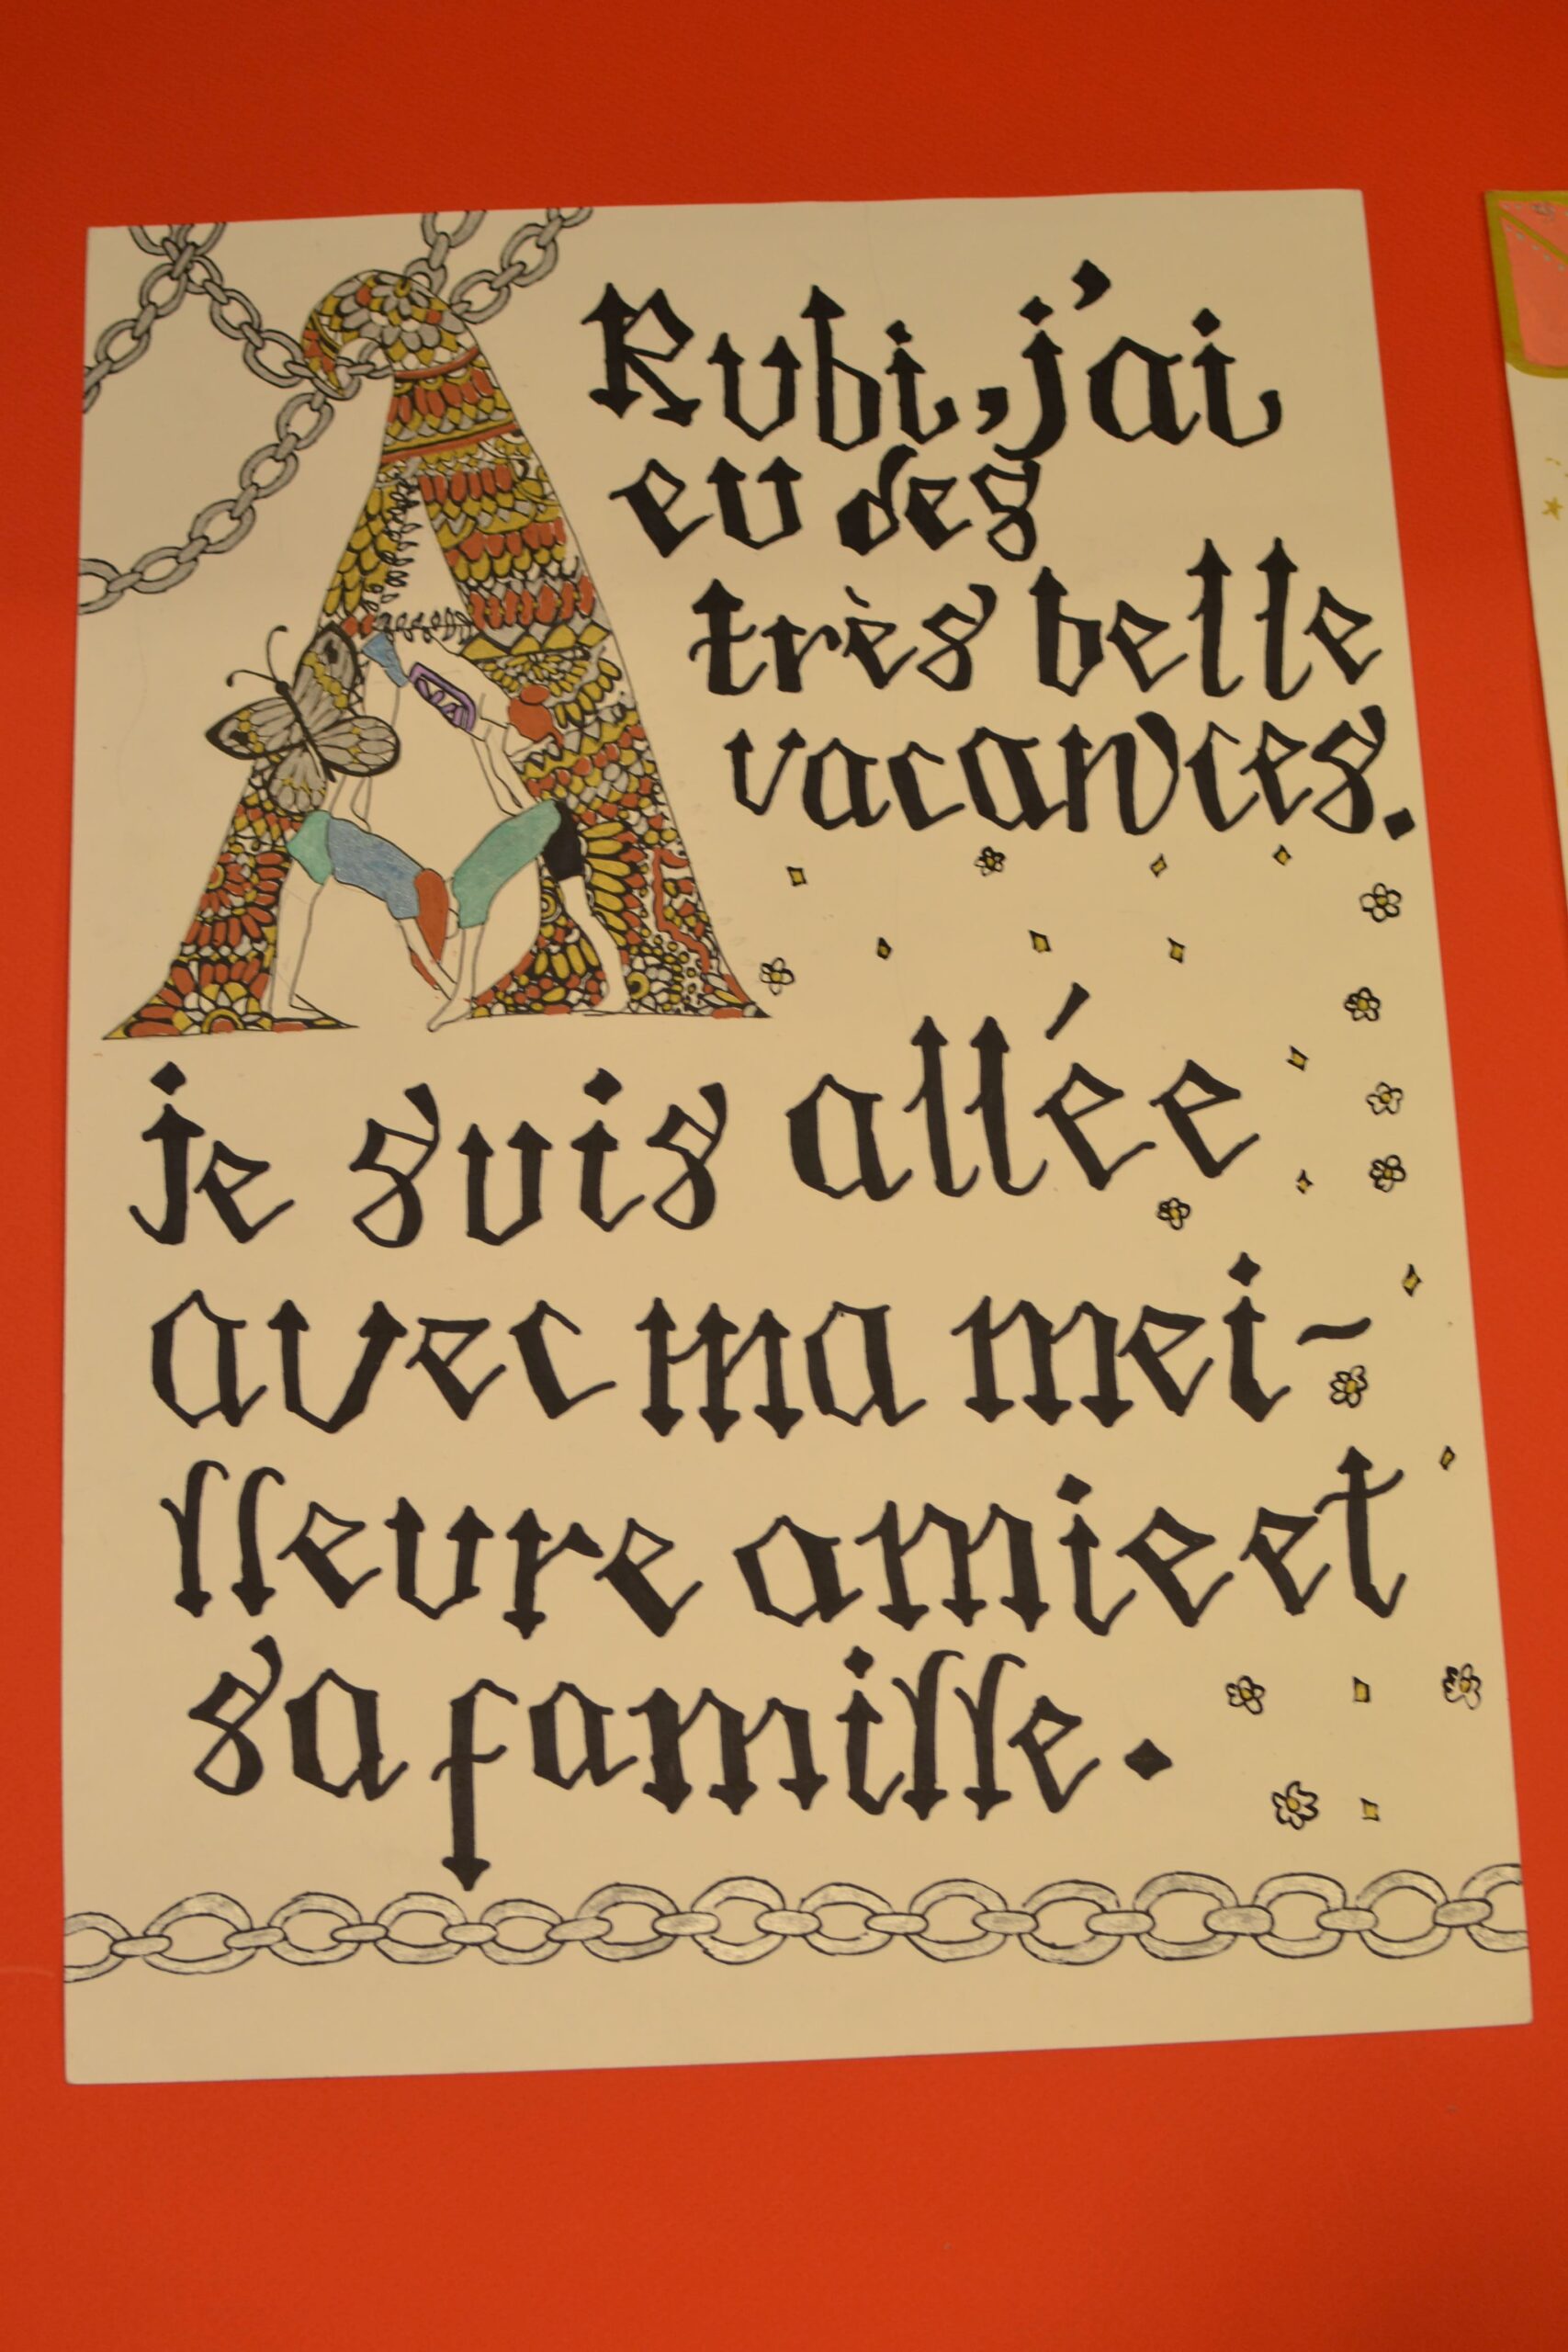 A Rubi, j'ai
eu des
très belle
vacances.
je suis allée
avec ma mei-
lleure amie et
sa famille.